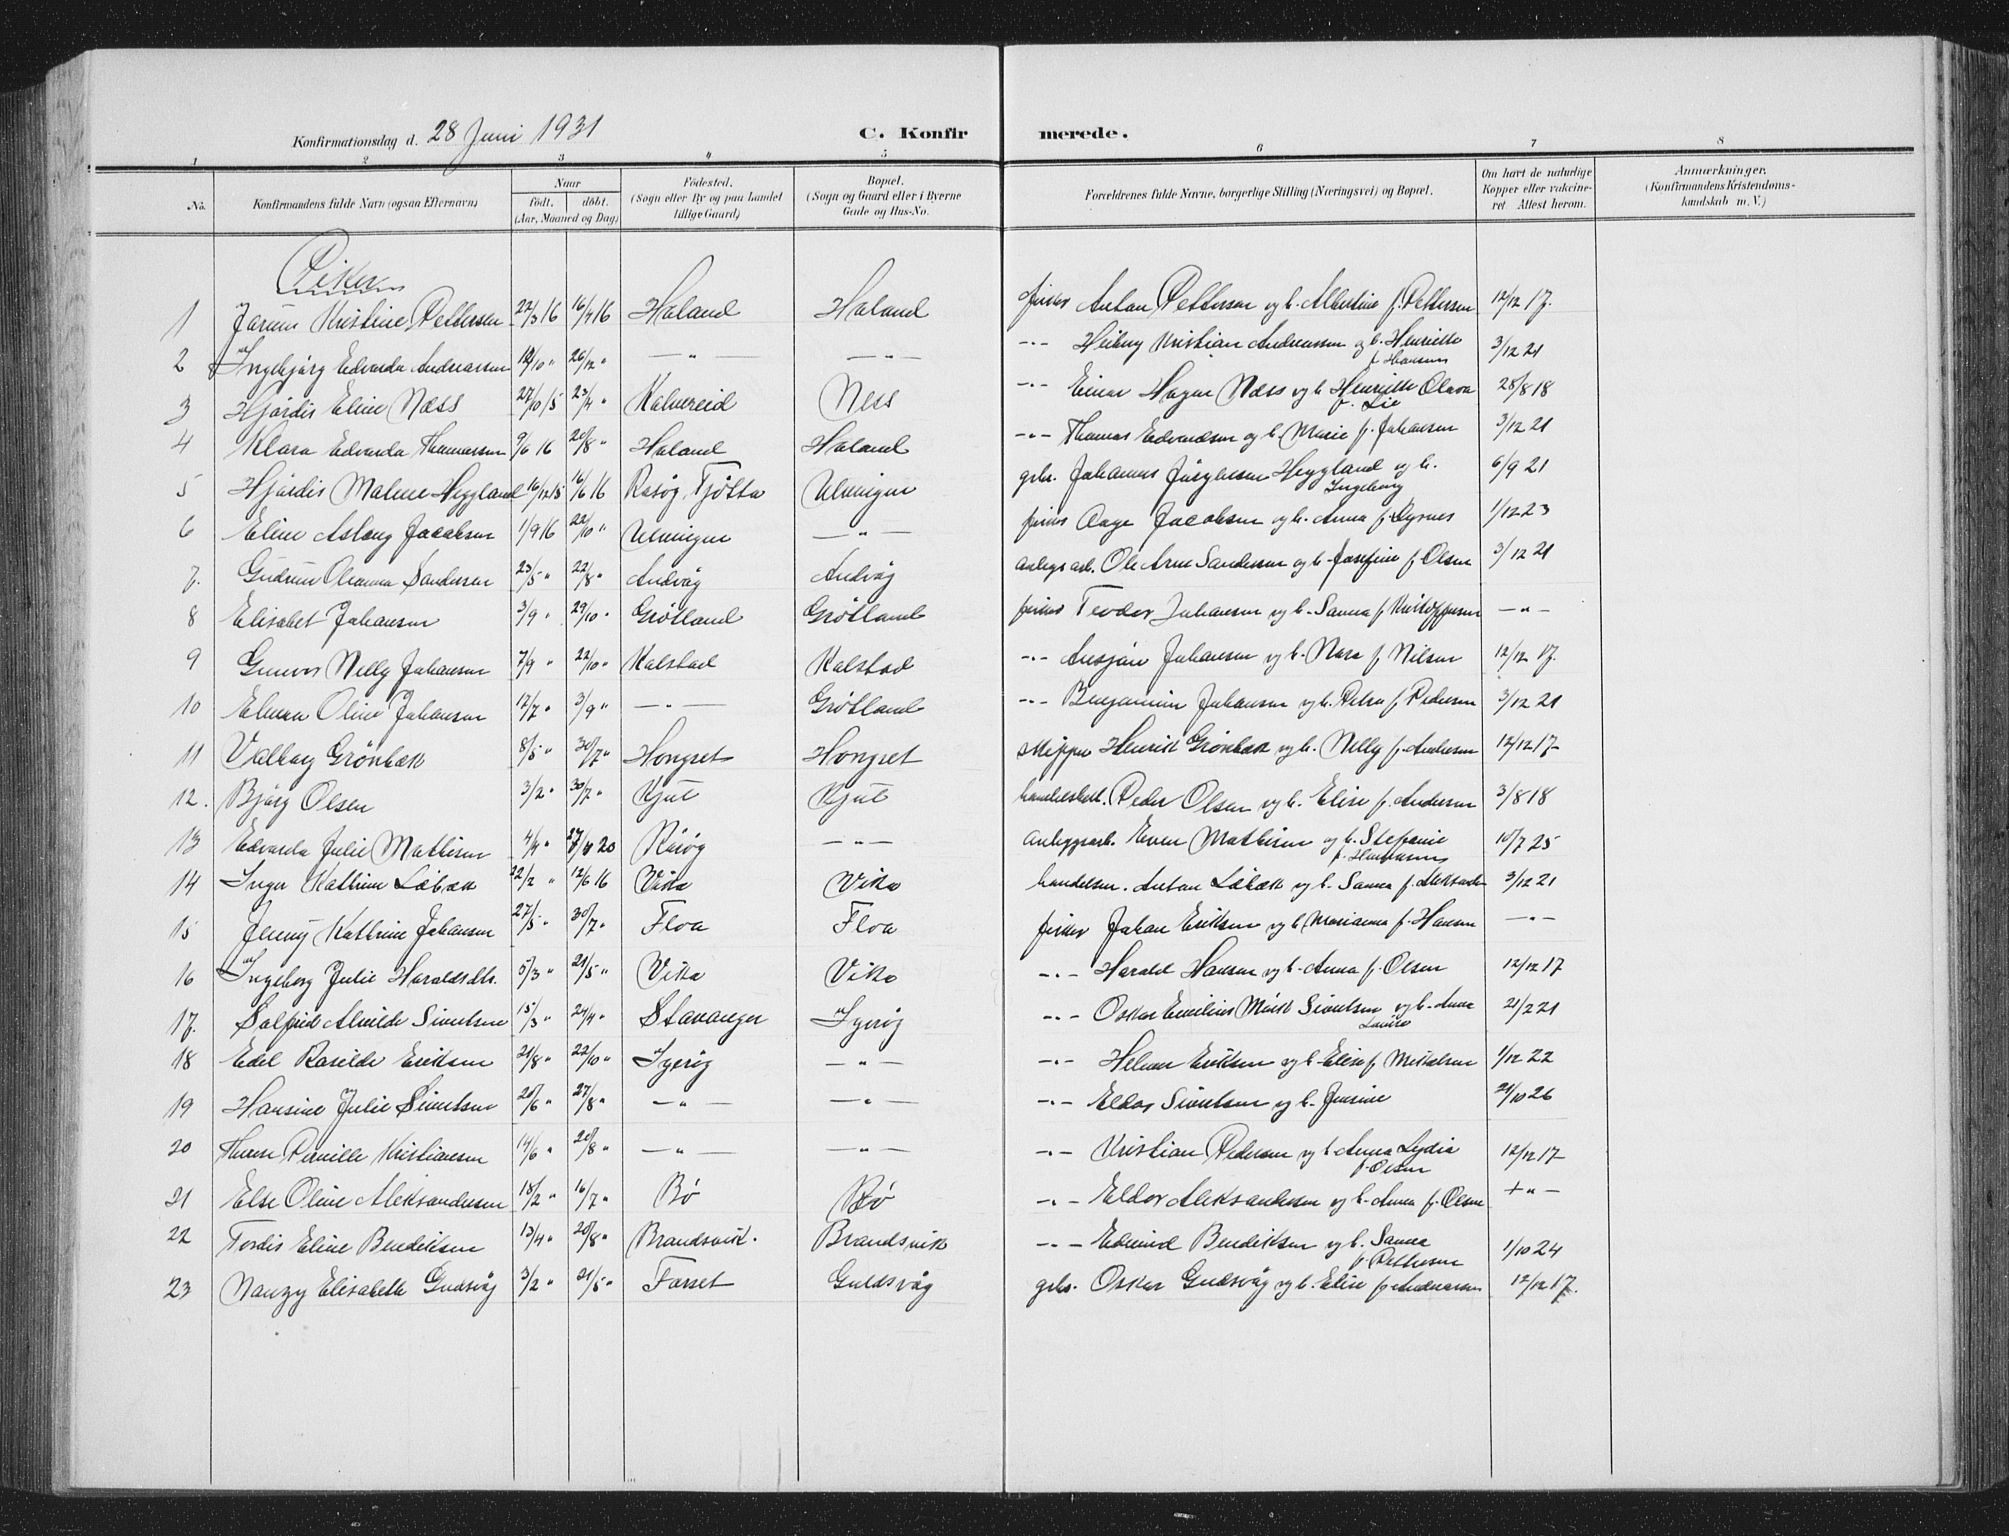 Konfirmationsdag d. 28 Juni 1931
C. Konfirmerede.
1 2 3 4 5 6 7 8
No.
Konfirmandens fulde Navn (ogsaa Efternavn)
Naar
födt. döbt.
(Aar, Maaned og Dag)
Födested.
(Sogn eller By og paa Landet
tillige Gaard)
Bopæl.
(Sogn og Gaard eller i Byerne
Gade og Hus-No.
Forældrenes fulde Navne, borgerlige Stilling (Næringsvei) og Bopæl.
Om havt de naturlige
Kopper eller vakcine-
ret. Attest herom.
Anmærkninger.
(Konfirmandens Kristendoms-
kundskab m. V.)
Piker
1 Kristine Pettersen 22/3 16 16/4 16 Haland Haland fisker Anton Pettersen og h. Albertine f. Pettersen 12/12 17.
2 Ingebjørg Edvarda Andreassen /10 " 26/12 " — " — — " — -"- Kristian Andreassen og h. Henriette f. Hansen 3/12 21
3 Hjørdis Eline Næss 27/10 15 23/4 " Kalvereid Ness -"- Einar Hagen Næss og h. Henriette Olava f. Lie 28/8 18
4 Klara Edvarda Thomassen 9/6 16 20/8 " Haland Haland -"- Thomas Edvardsen og h. Marie f. Johansen 3/12 21
5 Hjørdis Malene Heggland 16/12 15 16/6 16 Røsøg, Tjøtta Ulvingen gbr. Johannes Jørgensen Heggland og h. Ingeborg 6/9 21
6 Eline Aslaug Jacobsen 1/9 16 22/10 " Ulvingen — " — fisker Aage Jacobsen og h. Anna f. Dyrnes 1/12 23
7. Gudrun Oleanna Sandersen 23/5 " 22/8 " Andvåg Andvåg anlegsarb. Ole Arne Sandersen og h. Josefine f. Olsen 3/12 21
8 Elisabet Johansen 3/9 " 29/10 " Grøtland Grøtland fisker Teodor Johansen og h. Sanna f. Kristoffersen — " —
9 Gunvor Nelly Johansen 7/9 " 22/10 " Kalstad Kalstad -"- Ansjøn Johansen og h. Nora f. Nilsen 12/12 17.
10 Oline Johansen 12/7 " 3/9 " — " — Grøtland -"- Benjamin Johansen og h. Petra f. Pedersen 3/12 21
11 Valborg Grönbæk 8/5 " 30/7 " Hongset Hongset skipper Henrik Grönbæk og h. Nelly f. Andersen 12/12 17-
12. Bjørg Olsen 3/2 " 30/7 " Kjul Kjul handelsbest. Peder Olsen og h. Elise f. Andersen 3/8 18
13 Edvarda Julie Mathisen 4/4 " 20 Røsög — " — anleggsarb. Even Mathisen og h. Stefanie f. Hermansen 10/7 25
14 Inger Kathrine Løbæk 22/2 " 12/6 16 Vika Vika handelsm. Anton Løbæk og h. Sanna f. Aleksander 3/12 21
15 Jenny Kathrine Johansen 27/5 " 30/7 " Floa Floa fisker Johan Eriksen og h. Marianna f. Hansen — " —
16 Ingeborg Julie Haraldsdtr. 5/3 " 21/5 " Vika Vika -"- Harald Hansen og h. Anna f. Olsen 12/12 17
17. Solfrid Alvilde Sivertsen 15/3 " 24/4 " Stavanger Igerøy -"- Oskar Emilius Sivertsen og h. Anna 21/2 21
18 Edel Rasilde Eriksen 21/8 " 22/10 " Igerøy — " — -"- Helmer Eriksen og h. Elise f. Mikalsen 1/12 22
19 Hansine Julie Sivertsen 20/6 " 27/8 " — " — — " — -"- Eldor Sivertsen og h. Jensine 21/10 26
20 Pernille Kristiansen 14/6 " 20/8 " — " — — " — -"- Kristian Pedersen og h. Anna Lydia f. Olsen 12/12 17-
21 Else Oline Aleksandersen 18/2 " 16/7 " Bø Bø -"- Eldor Aleksandersen og h. Anna f. Olsen — " —
22 Tordis Eline Bendiksen 13/4 " 20/8 " Brandsvik. Brandsvik -"- Edvind Bendiksen og h. Sanna f. Pettersen 1/10 24
23 Nanzy Elisabeth Guldsvåg 3/2 " 21/5 " Forset Guldsvåg gbr. Oskar Guldsvåg og h. Elise f. Andreassen 12/12 17.